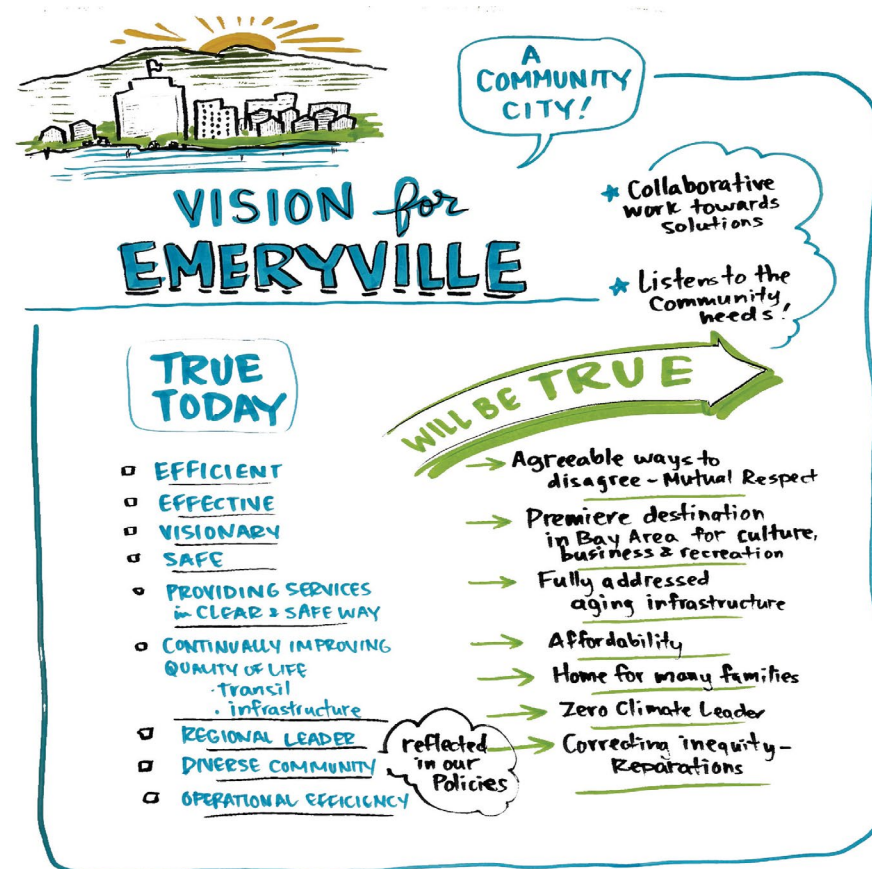 A
COMMUNITY
CITY!
VISION for
EMERYVILLE
★ Collaborative
work towards
solutions
★ Listens to the
Community
needs!
TRUE
TODAY
EFFICIENT
EFFECTIVE
VISIONARY
SAFE
PROVIDING SERVICES
in CLEAR & SAFE WAY
CONTINUALLY IMPROVING
QUALITY OF LIFE
· transit
· infrastructure
REGIONAL LEADER
DIVERSE COMMUNITY
OPERATIONAL EFFICIENCY
reflected
in our
Policies
WILL BE TRUE
→ Agreeable ways to
disagree - Mutual Respect
→ Premiere destination
in Bay Area for culture,
business & recreation
→ Fully addressed
aging infrastructure
→ Affordability
→ Home for many families
→ Zero Climate Leader
→ Correcting inequity -
Reparations